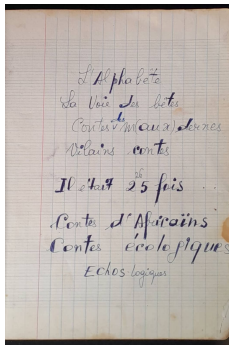 L'Alphabête
La Voie des bêtes
Contes des m(aux)dernes
Vilains contes
Il était 25 fois ...
26
Contes d'Africains
Contes écologiques
Echos logiques